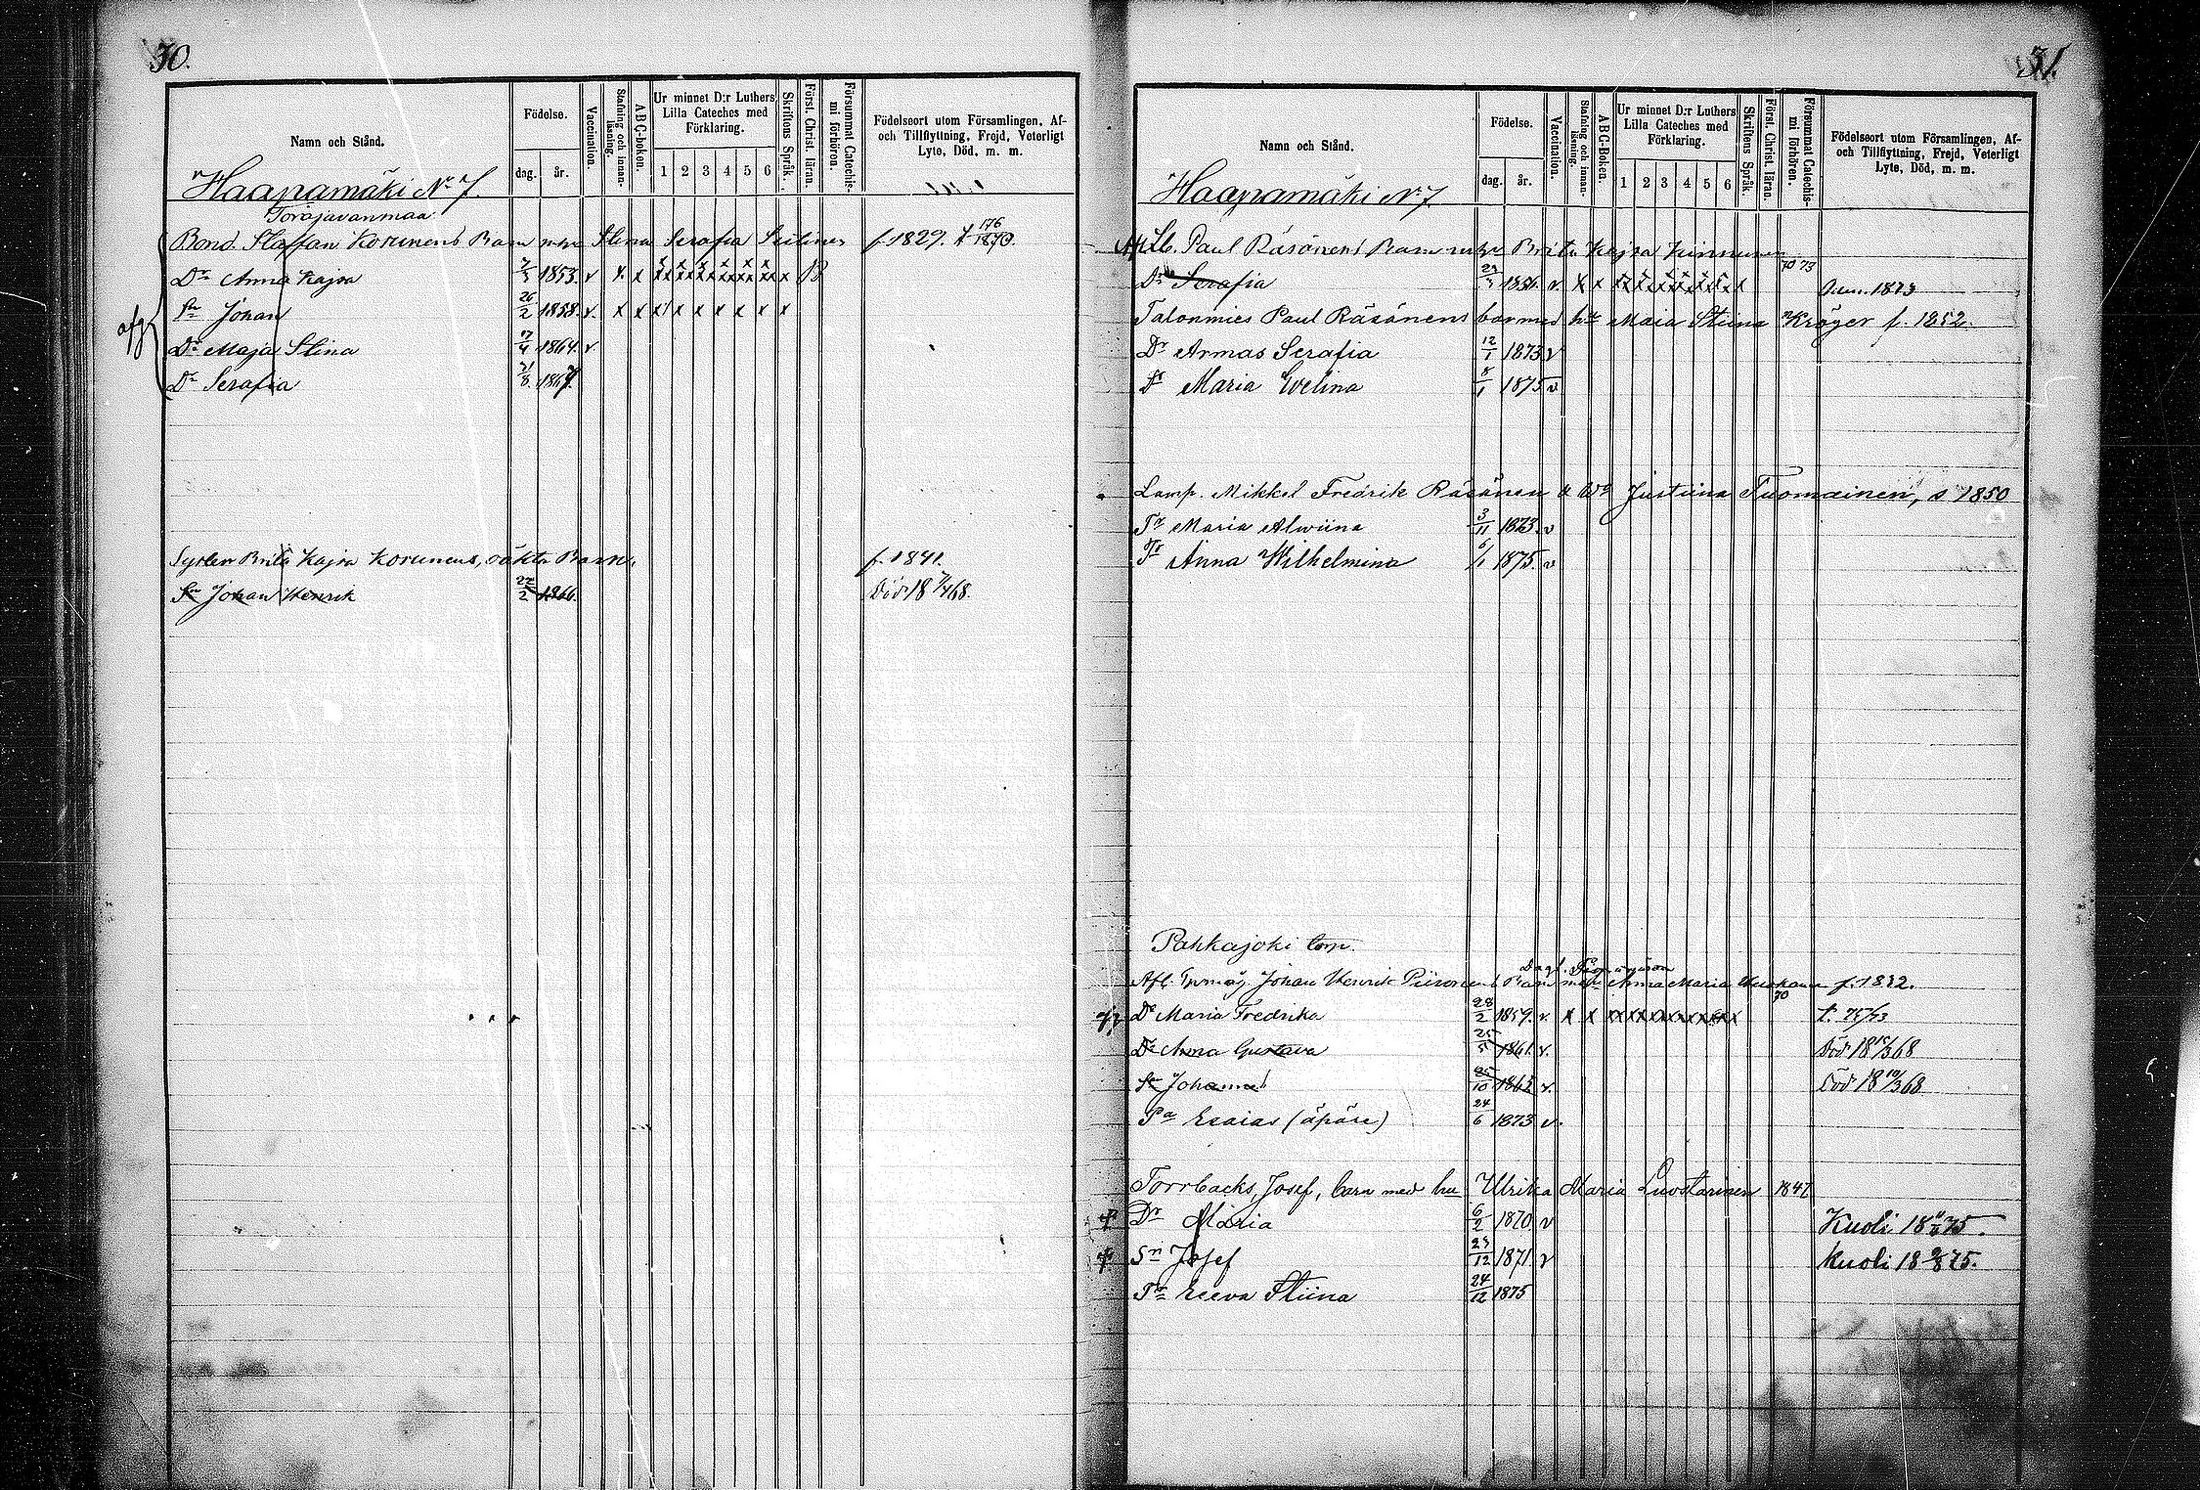 30.
Namn och Stånd.
Födelse.
dag.
år.
Vaccination.
Stafning och innan-läsning.
ABC-boken.
Ur minnet D:r Luthers Lilla Cateches med Förklaring.
1 2 3 4 5 6
Skriftens Språk.
Först. Christ. läran.
Försummat Catechis-mi förhören.
Födelseort utom Församlingen, Af- och Tillflyttning, Frejd, Veterligt Lyte, Död, m. m.
Haapamäki No 7.
Bond. Staffan Korunens Barn Stina Serafia f. 1829. 1870.
Dr Anna Kajsa 1853. v x x B
Sn Johan 26/2 1858. v. x x x x x x x x x
afg
Dr Maja Stina 17/4 1864. v
Dr Serafia 21/8 1867.
Syster Brita Kajsa Korunens, oäkta Barn. f. 1841.
Sn Johan Henrik 22/2 1866. Död 18 68.
31.
Namn och Stånd.
Födelse.
dag.
år.
Vaccination.
Stafning och innan-läsning.
ABC-Boken.
Ur minnet D:r Luthers Lilla Cateches med Förklaring.
1 2 3 4 5 6
Skriftens Språk.
Först. Christ. läran.
Försummat Catechis-mi förhören.
Födelseort utom Församlingen, Af- och Tillflyttning, Frejd, Veterligt Lyte, Död, m. m.
Haapamäki No 7.
Paul Räsänens Barn Brita Kajsa Kinnunen
70 73
Dr Serafia v. x x 1873
Talonmies Paul Räsänens barn med Maia Stiina Kröger f. 1852.
Dr Armas Serafia 12/1 1873 v
Dr Maria Evelina 8/1 1875 v
Lamp. Mikkel Fredrik Räsänen Justiina Tuomainen, s 1850
Tr Maria Alwiina 3/11 1873. v
Tr Anna Wilhelmina 6/1 1875. v
Pahkajoki torp.
Johan Henrik Piironens Barn Anna Maria f. 1832.
70
Dr Maria Fredrika 28/2 1859. v. x x
Dr Anna Gustava 25/5 1861. v. Död 18 68
Sn Johannes 25/10 1863. v. Död 18 10/3 68
Pa Esaias (äpäre) 24/6 1873 v.
Torrbacks, Josef, barn med hu Ulrika Maria Luostarinen 1847
Dr Maria 6/2 1870. v Kuoli 18 75.
Sn Josef 23/12 1871. v Kuoli 18 75.
Tr Eeva Stiina 24/12 1875